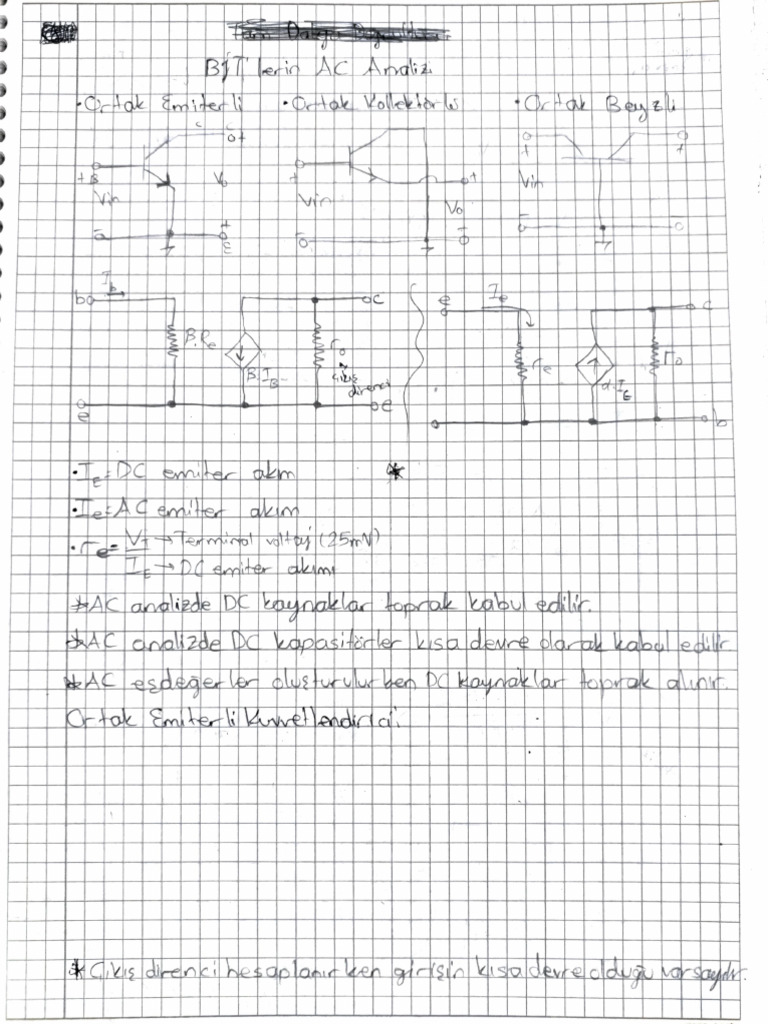 BJT'lerin AC Analizi
• Ortak Emiterli • Ortak Kollektörlü • Ortak Beyzli
c o+ o o
+B + + +
Vin Vo Vin o+ Vin
Vo
+
-o o -o -o o -o
E
Ib Ie
b o o c e o c
β.Re ro re ro
β.IB Çıkış direnci α.IE
e o e b
• IE = DC emiter akım *
• Ie = AC emiter akım
• re = VT → Terminal voltaj (25mV)
IE → DC emiter akımı
* AC analizde DC kaynaklar toprak kabul edilir.
* AC analizde DC kapasitörler kısa devre olarak kabul edilir.
* AC eşdeğerler oluşturulurken DC kaynaklar toprak alınır.
Ortak Emiterli Kuvvetlendirici:
* Çıkış direnci hesaplanırken girişin kısa devre olduğu varsayılır.